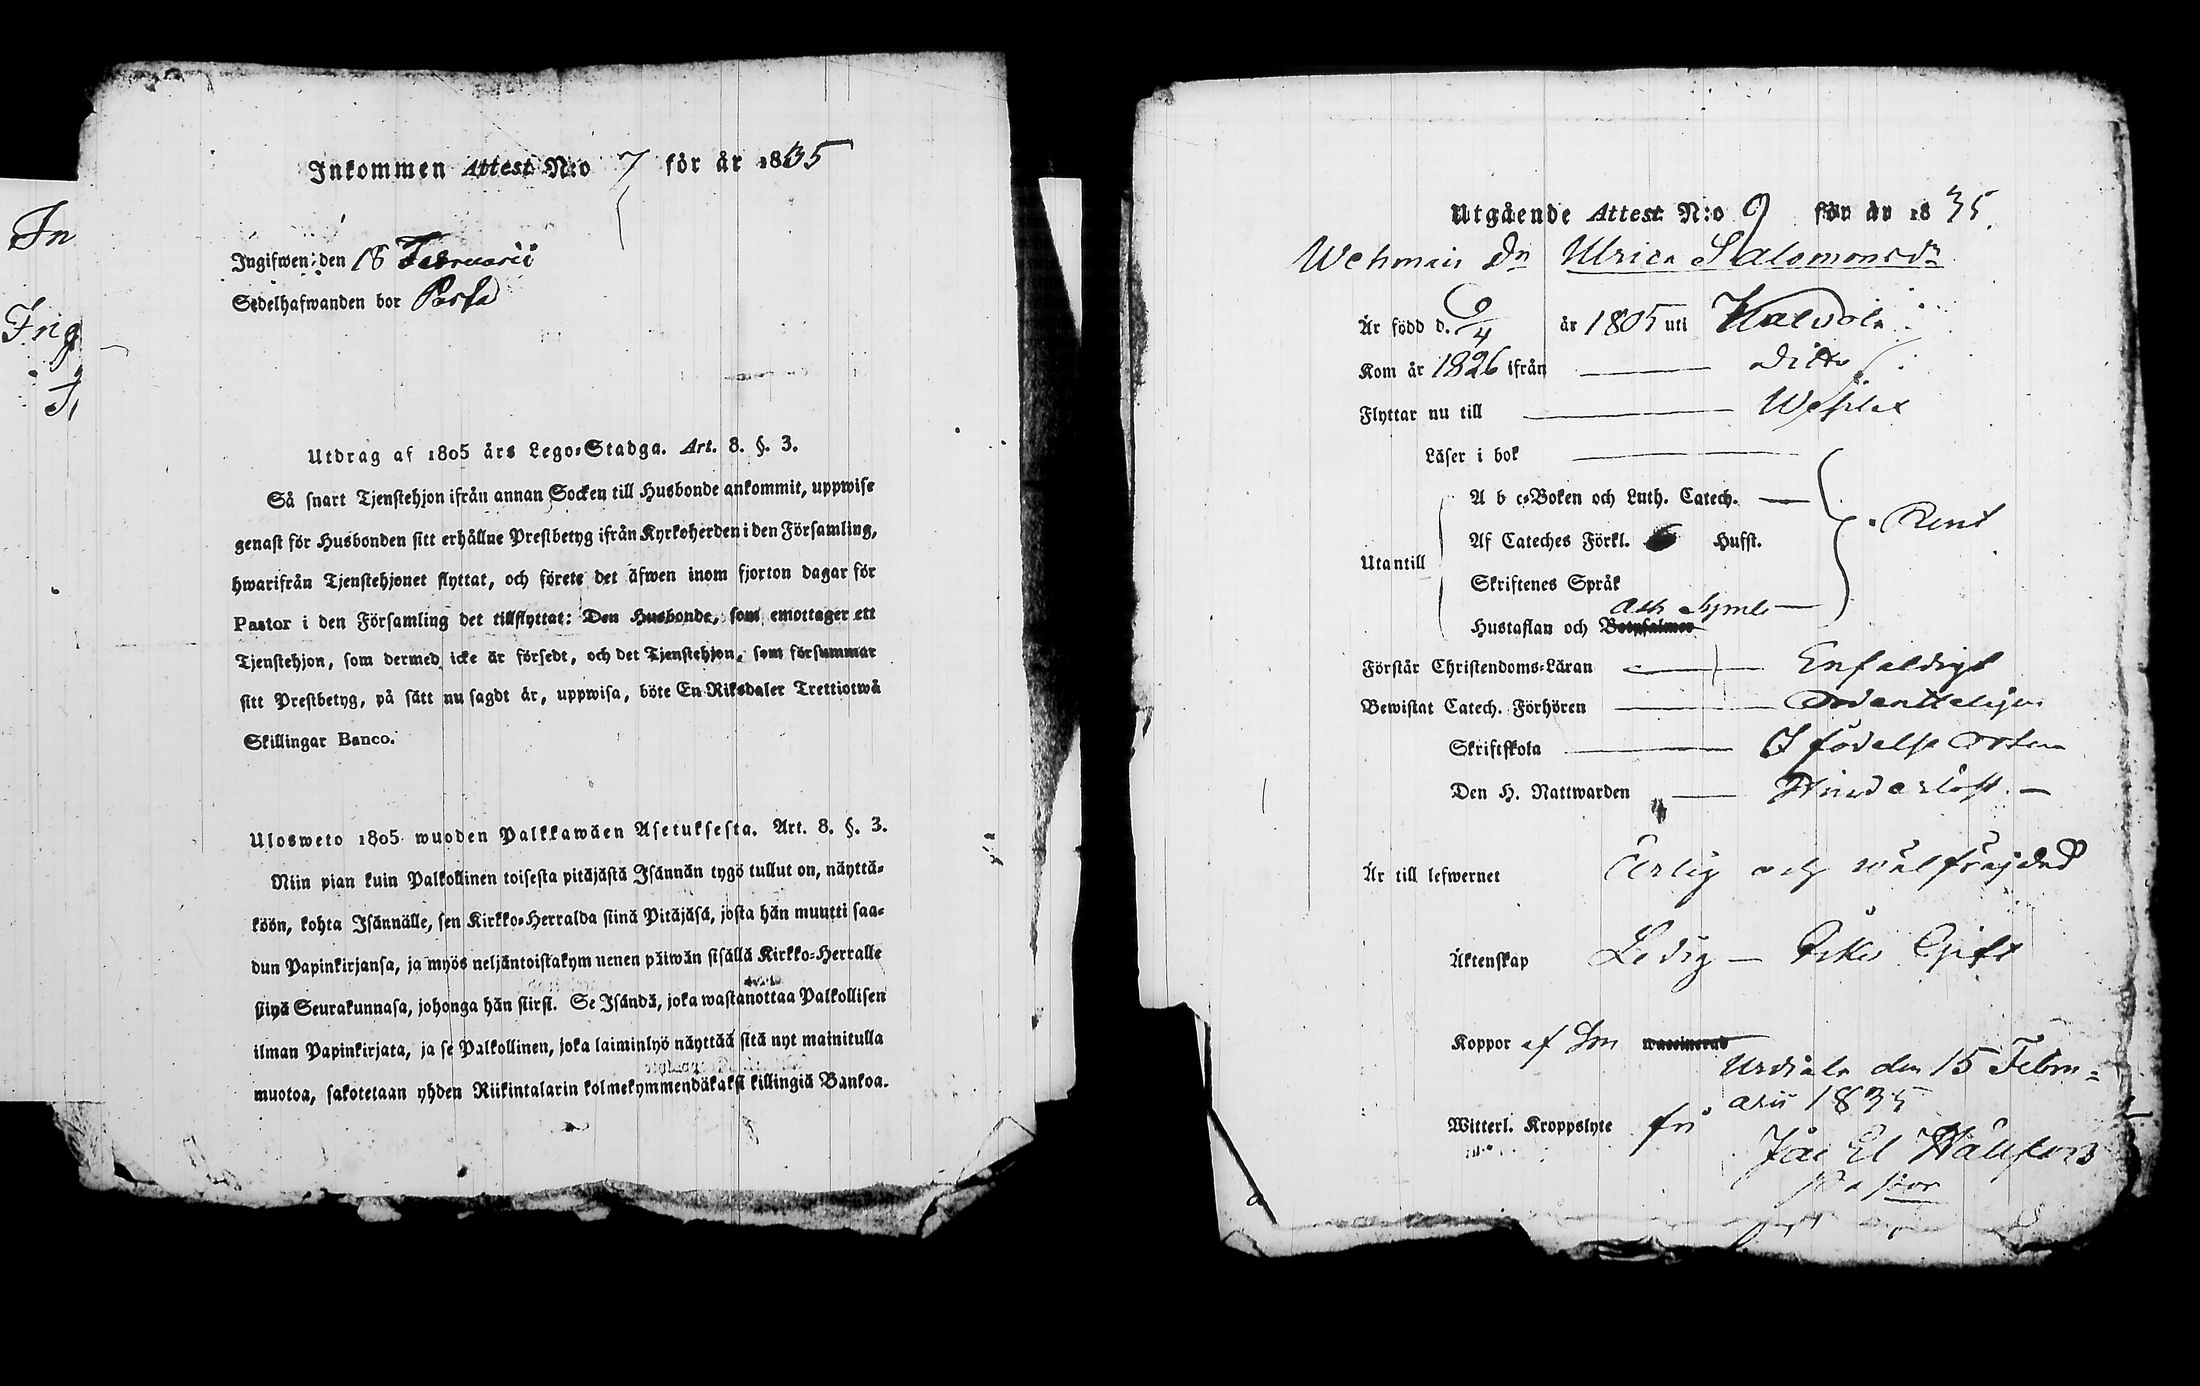 In
Ing
Inkommen Attest N:o 7 för år 1835
Ingifwen den 18 Februarii
Sedelhafwanden bor
Utdrag af 1805 års Lego-Stadga. Art. 8. §. 3.
Så snart Tjenstehjon ifrån annan Socken till Husbonde ankommit, uppwise
genast för Husbonden sitt erhållne Prestbetyg ifrån Kyrkoherden i den Församling,
hwarifrån Tjenstehjonet flyttat, och förete det äfwen inom fjorton dagar för
Pastor i den Församling det tillflyttat: Den Husbonde, som emottager ett
Tjenstehjon, som dermed icke är försedt, och det Tjenstehjon, som försummar
sitt Prestbetyg, på sätt nu sagdt är, uppwisa, böte En Riksdaler Trettiotwå
Skillingar Banco.
Ulosweto 1805 wuoden Palkkawäen Asetuksesta. Art. 8. §. 3.
Niin pian kuin Palkollinen toisesta pitäjästä Isännän tygö tullut on, näyttä-
köön, kohta Isännälle, sen Kirkko-Herralda siinä Pitäjäsä, josta hän muutti saa-
dun Papinkirjansa, ja myös neljäntoistakymmenen päiwän sisällä Kirkko-Herralle
siinä Seurakunnasa, johonga hän siirsi. Se Isändä, joka wastanottaa Palkollisen
ilman Papinkirjata, ja se Palkollinen, joka laiminlyö näyttää sitä nyt mainitulla
muotoa, sakotetaan yhden Riikintalarin kolmekymmendäkaksi killingiä Bankoa.
Utgående Attest N:o 9 för år 1835.
Wehmais Dn Ulrica Salomonsdr
Är född d. 9/4 år 1805 uti Kalvola
Kom år 1826 ifrån — ditto
Flyttar nu till — Wesilax
Läser i bok —
A b c-Boken och Luth. Catech. —
Rent
Af Cateches Förkl. Husst.
Utantill
Skriftenes Språk
Ath Symb —
Hustaflan och Botpsalmer
Förstår Christendoms-Läran — Enfaldigt
Bewistat Catech. Förhören — Ordenteligen
Skriftskola — I födelse Orten
Den H. Nattwarden — Hinderlöst. —
Är till lefwernet Ärlig och wälfräjdad
Äktenskap Ledig — Icke Gift
Koppor af Som waccinerad
Urdiala den 15 Febru=
arii 1835
Witterl. Kroppslyte fri
Joh El Hällfors
Pastor